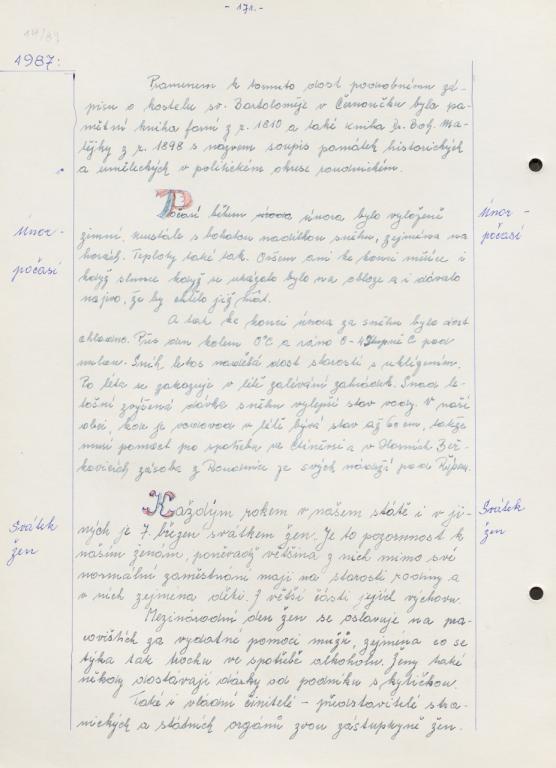 - 171. -
1987:
Pramenem k tomuto dost podrobnému zá-
pisu o kostelu sv. Bartoloměje v Černoučku byla pa-
mětní kniha farní z r. 1810 a také kniha Dr. Boh. Ma-
tějky z r. 1898 s názvem soupis památek historických
a uměleckých v politickém okrese roudnickém.
Únor -
počasí
Únor -
počasí
Počasí během února bylo vyloženě
zimní, neustále s bohatou nadílkou sněhu, zejména na
horách. Teploty také tak. Ovšem ani ke konci měsíce i
když slunce když se ukázalo bylo na obloze a i dávalo
najevo, že by chtělo již hřát.
A tak ke konci února za sněhu bylo dost
chladno. Přes den kolem 0°C a ráno 0-4 stupně C pod
nulou. Sníh letos nadělá dost starostí s uklízením.
Po léta se zakazuje v létě zalévání zahrádek. Snad le-
tošní zvýšená dávka sněhu vylepší stav vody. V naší
obci, kde je vodovod v létě bývá stav až 60 cm, takže
musí pomoct pro spotřebu ve Ctiněvsi a v Horních Beř-
kovicích zásoba z Roudnice ze svých nádrží pod Řípem.
Svátek
žen
Svátek
žen
Každým rokem v našem státě i v ji-
ných je 7. březen svátkem žen. Je to pozornost k
našim ženám, poněvadž většina z nich mimo své
normální zaměstnání mají na starosti rodiny a
v nich zejména děti. Z větší části jejich výchovu.
Mezinárodní den žen se oslavuje na pra-
covištích za vydatné pomoci mužů, zejména co se
týká tak trochu ve spotřebě alkoholu. Ženy také
někdy dostávají dárky od podniku s kytičkou.
Také i vládní činitelé - představitelé stra-
nických a státních orgánů zvou zástupkyně žen.